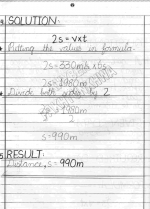 SOLUTION:
2s = v×t
Putting the values in formula.
2s = 330m/s × 6s
2s = 1980m
Divide both sides by 2
2s = 1980m
2 2
s = 990m
RESULT:
Distance, s = 990m